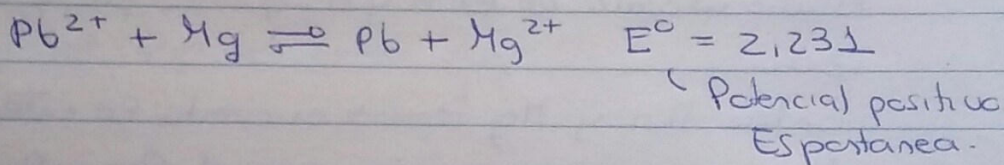 Pb²⁺ + Mg ⇌ Pb + Mg²⁺ E° = 2,231
Potencial positivo
Espostanea.